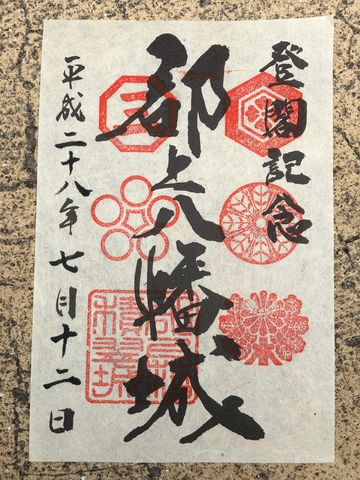 登閣記念
郡上八幡城
平成二十八年七月十二日